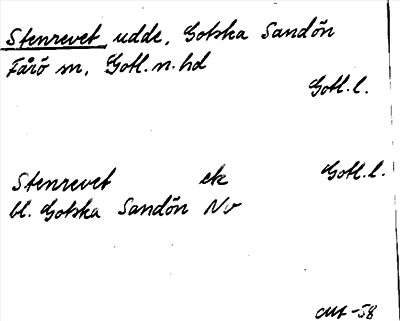 Stenrevet, udde, Gotska Sandön
Fårö sn, Gotl. n. hd
Gotl. l.
Stenrevet ek Gotl. l.
bl. Gotska Sandön Nv
-58